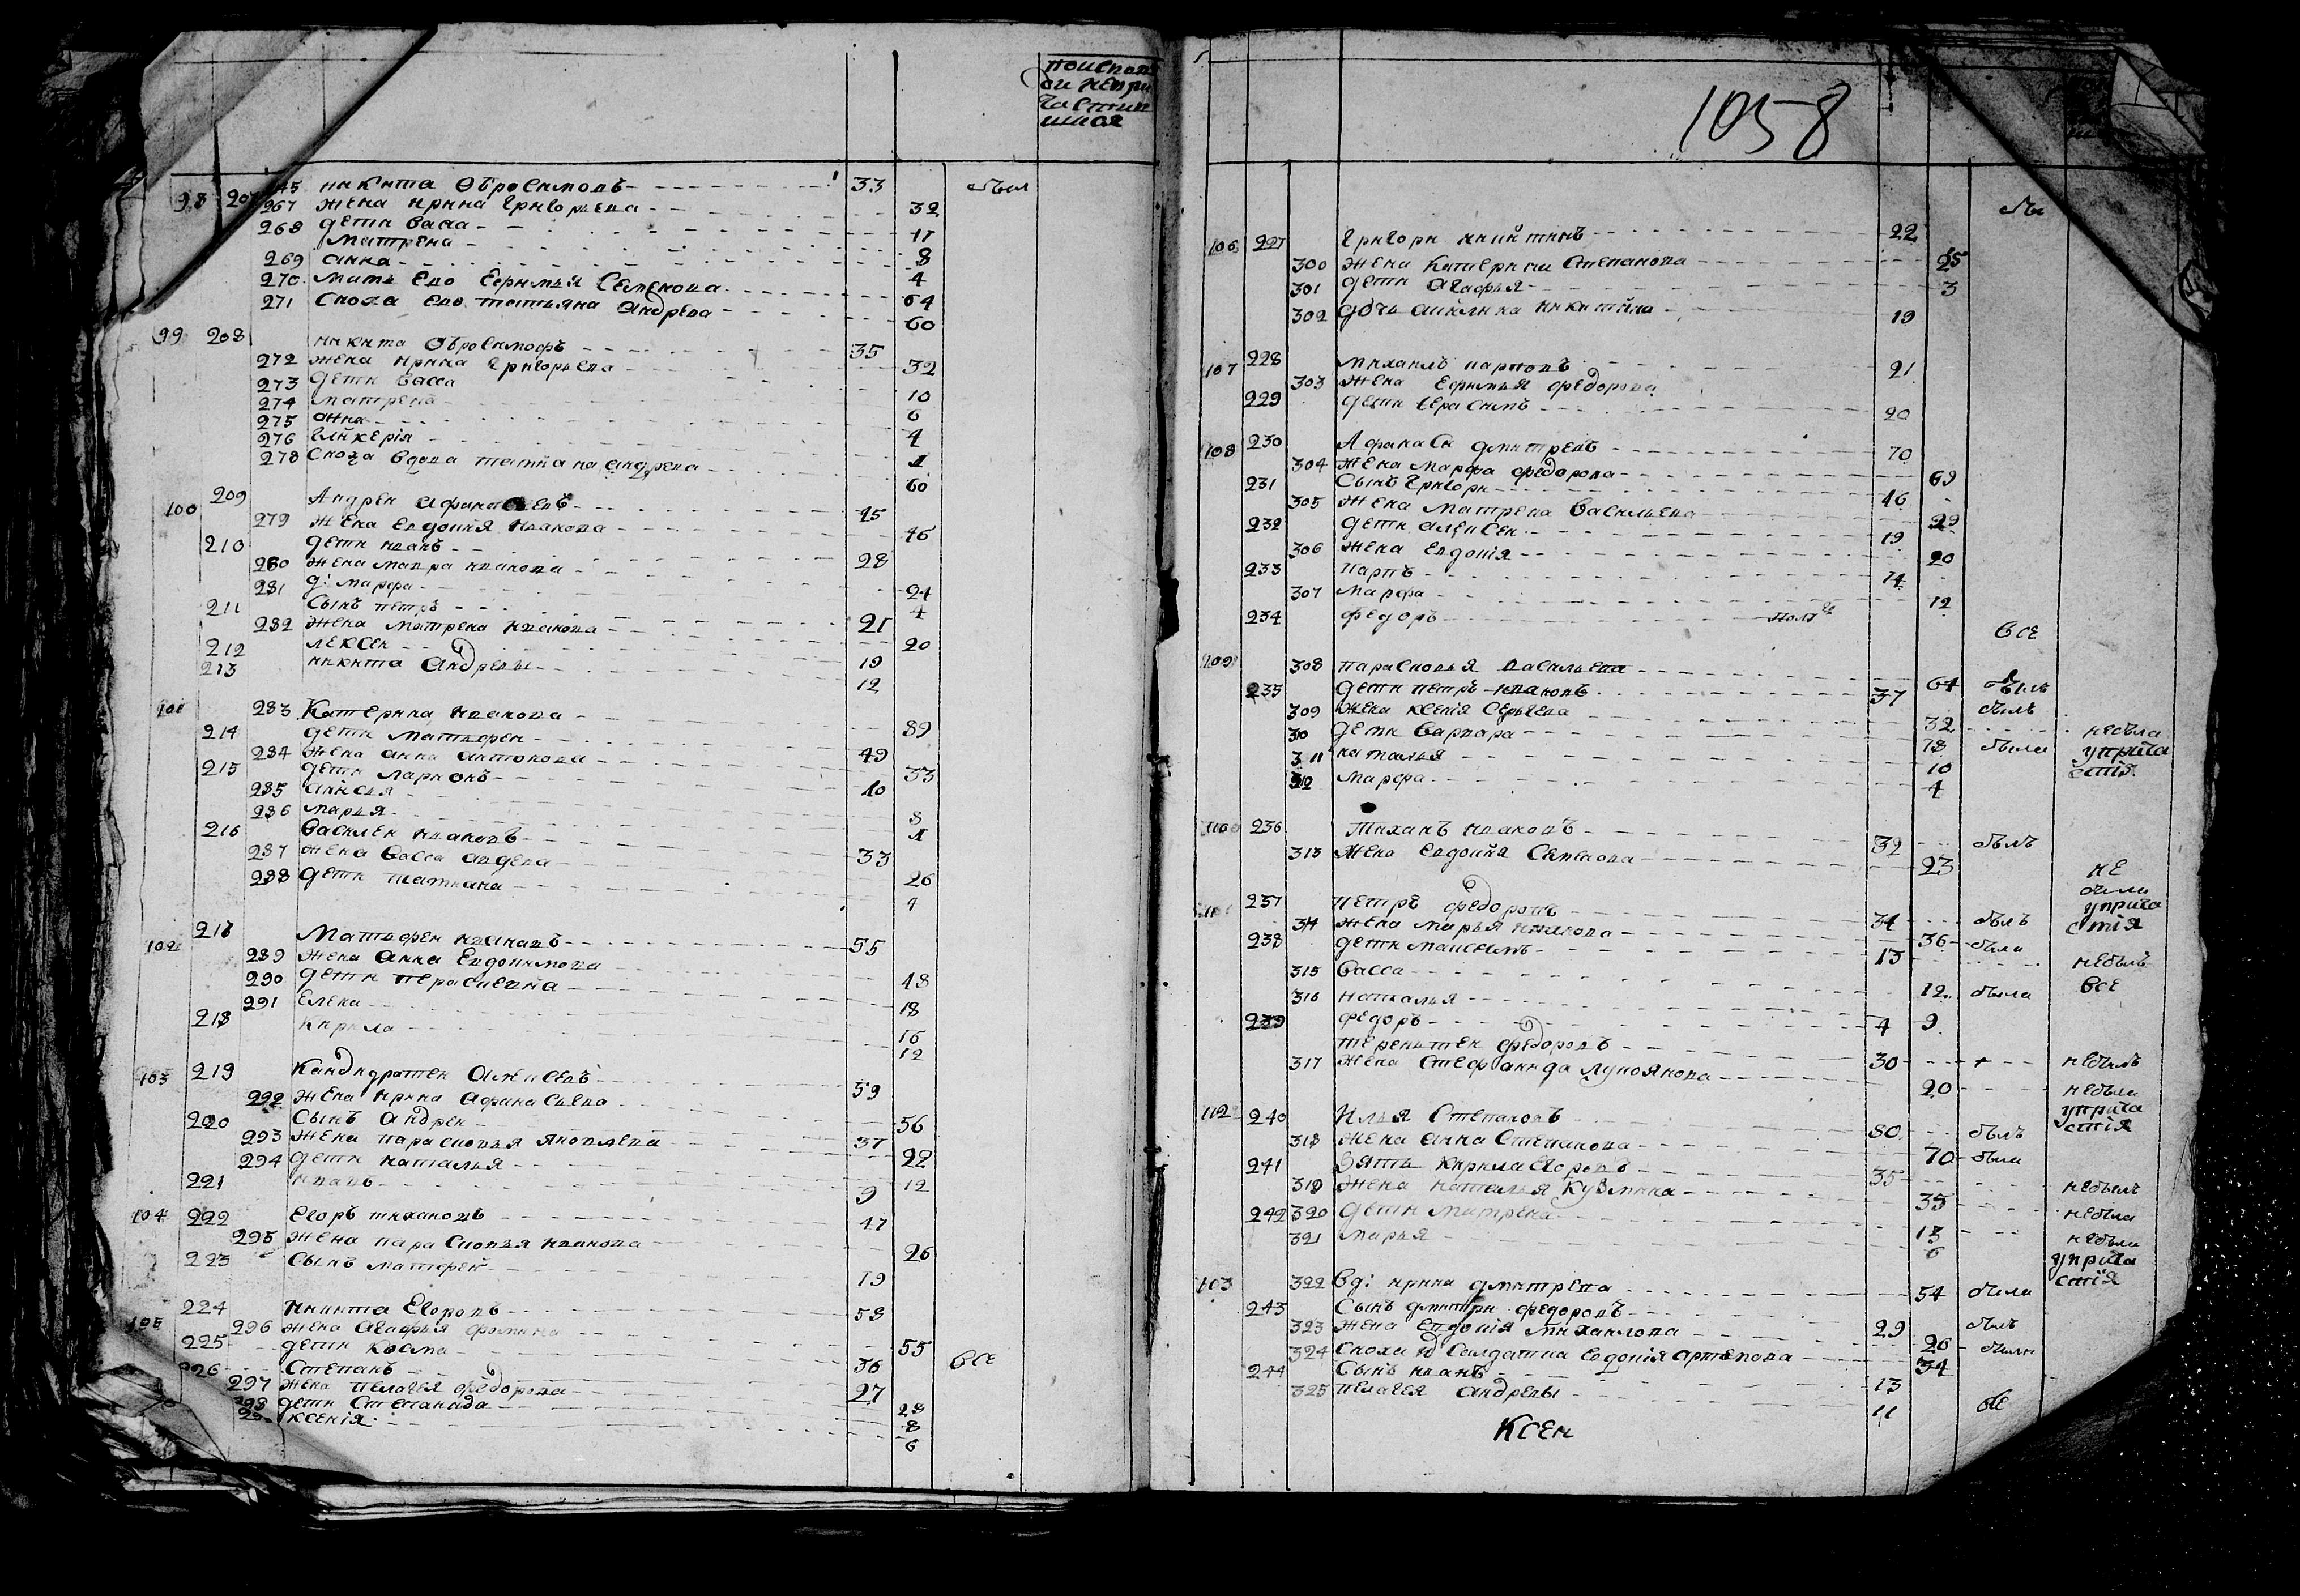 93 20 245 никита Обросимовъ 33 был
267 жена ирина григорьева 32
268 дети васса 11
матрена 8
269 анна 4
270 мать ево Ефимья Семенова 64
271 сноха ево татьяна андрева 60
99 208 никита Обросимофъ 35
272 жена ирина григорьева 32
273 дети васса 10
274 матрена 6
275 анна 4
276 гликерiя
278 сноха вдова татиана андрева 60
100 209 Андреи афанасевъ 45
279 жена евдокия иванова 46
210 дети иванъ 28
280 жена мавра иванова 24
281 д: марфа 4
211 сынъ петръ 21
282 жена матрена иванова 20
212 лексеи 19
213 никита андревы 12
101 283 Катерина иванова 89
214 дети матвфеи 49
284 жена анна антонова 33
215 дети ларионъ 10
285 8
286 марья
216 василеи ивановъ 33
287 жена васса авдева 26
288 дети татиана
102 217 матвфеи ивановъ 55
289 жена анна Евдокимова 48
290 дети 18
291 елена 16
218 кирила 12
103 219 Кандидратеи 59
292 жена ирина афанасьева 56
220 сынъ андреи 37
293 жена парасковья яковлева 22
294 дети наталья 12
221 иванъ 9
104 222 егоръ тихановъ 47
295 жена парасковья иванова 26
223 сынъ матфеи 19
105 224 никита егоровъ 58
296 жена агафья фомина 55
225 дети козма 36 все
226 степанъ 27
297 жена пелагея федорова 28
298 дети степанида 8
ксенiя 6
1058
106 227 григори никитинъ 22
300 жена катерина степанова 25
301 дети агафья 3
302 дочь акилина никитина 19
107 228 михаилъ карповъ 21
303 жена ефимья федорова
229 дети герасимъ 20
108 230 Афанаси дмитревъ 70
304 жена марфа федорова 69
231 сынъ григори 46
305 жена матрена васильева 29
232 дети алексеи 19
306 жена евдокiя 20
233 карпъ 14
307 марфа 12
234 федоръ
все
109 308 парасковья васильева 64
235 дети петръ ивановъ 37 былъ
309 жена ксенiя сергеева 32
310 дети варвара 18 была небыла
311 наталья 10 уприча
312 марфа 4 стiя
110 236 тиханъ ивановъ 32 былъ
313 жена евдокия семенова 23 не
была
237 петръ федоровъ 34 былъ уприча
314 жена марья 36 была стiя
238 дети максимъ 13 небылъ
315 васса 12 была все
316 наталья 9
239 федоръ 4
терентеи федоровъ 30 небылъ
317 жена стефанида лукоянова 20 небыла
уприча
112 240 илья степановъ 80 былъ стiя
318 жена анна степанова 70 была
241 зять кирила егоровъ 35 небылъ
319 жена наталья кузмина 35 небыла
242 320 дети матрена 13 небыла
321 марья 6 уприча
стiя
103 322 вд: ирина дмитрева 54 была
243 сынъ дмитри федоровъ 29 былъ
323 жена евдокiя михаилова 26 были
324 сноха салдатка евдокiя артемова 34
244 сынъ иванъ 13
325 пелагея андревы 11 все
ксен